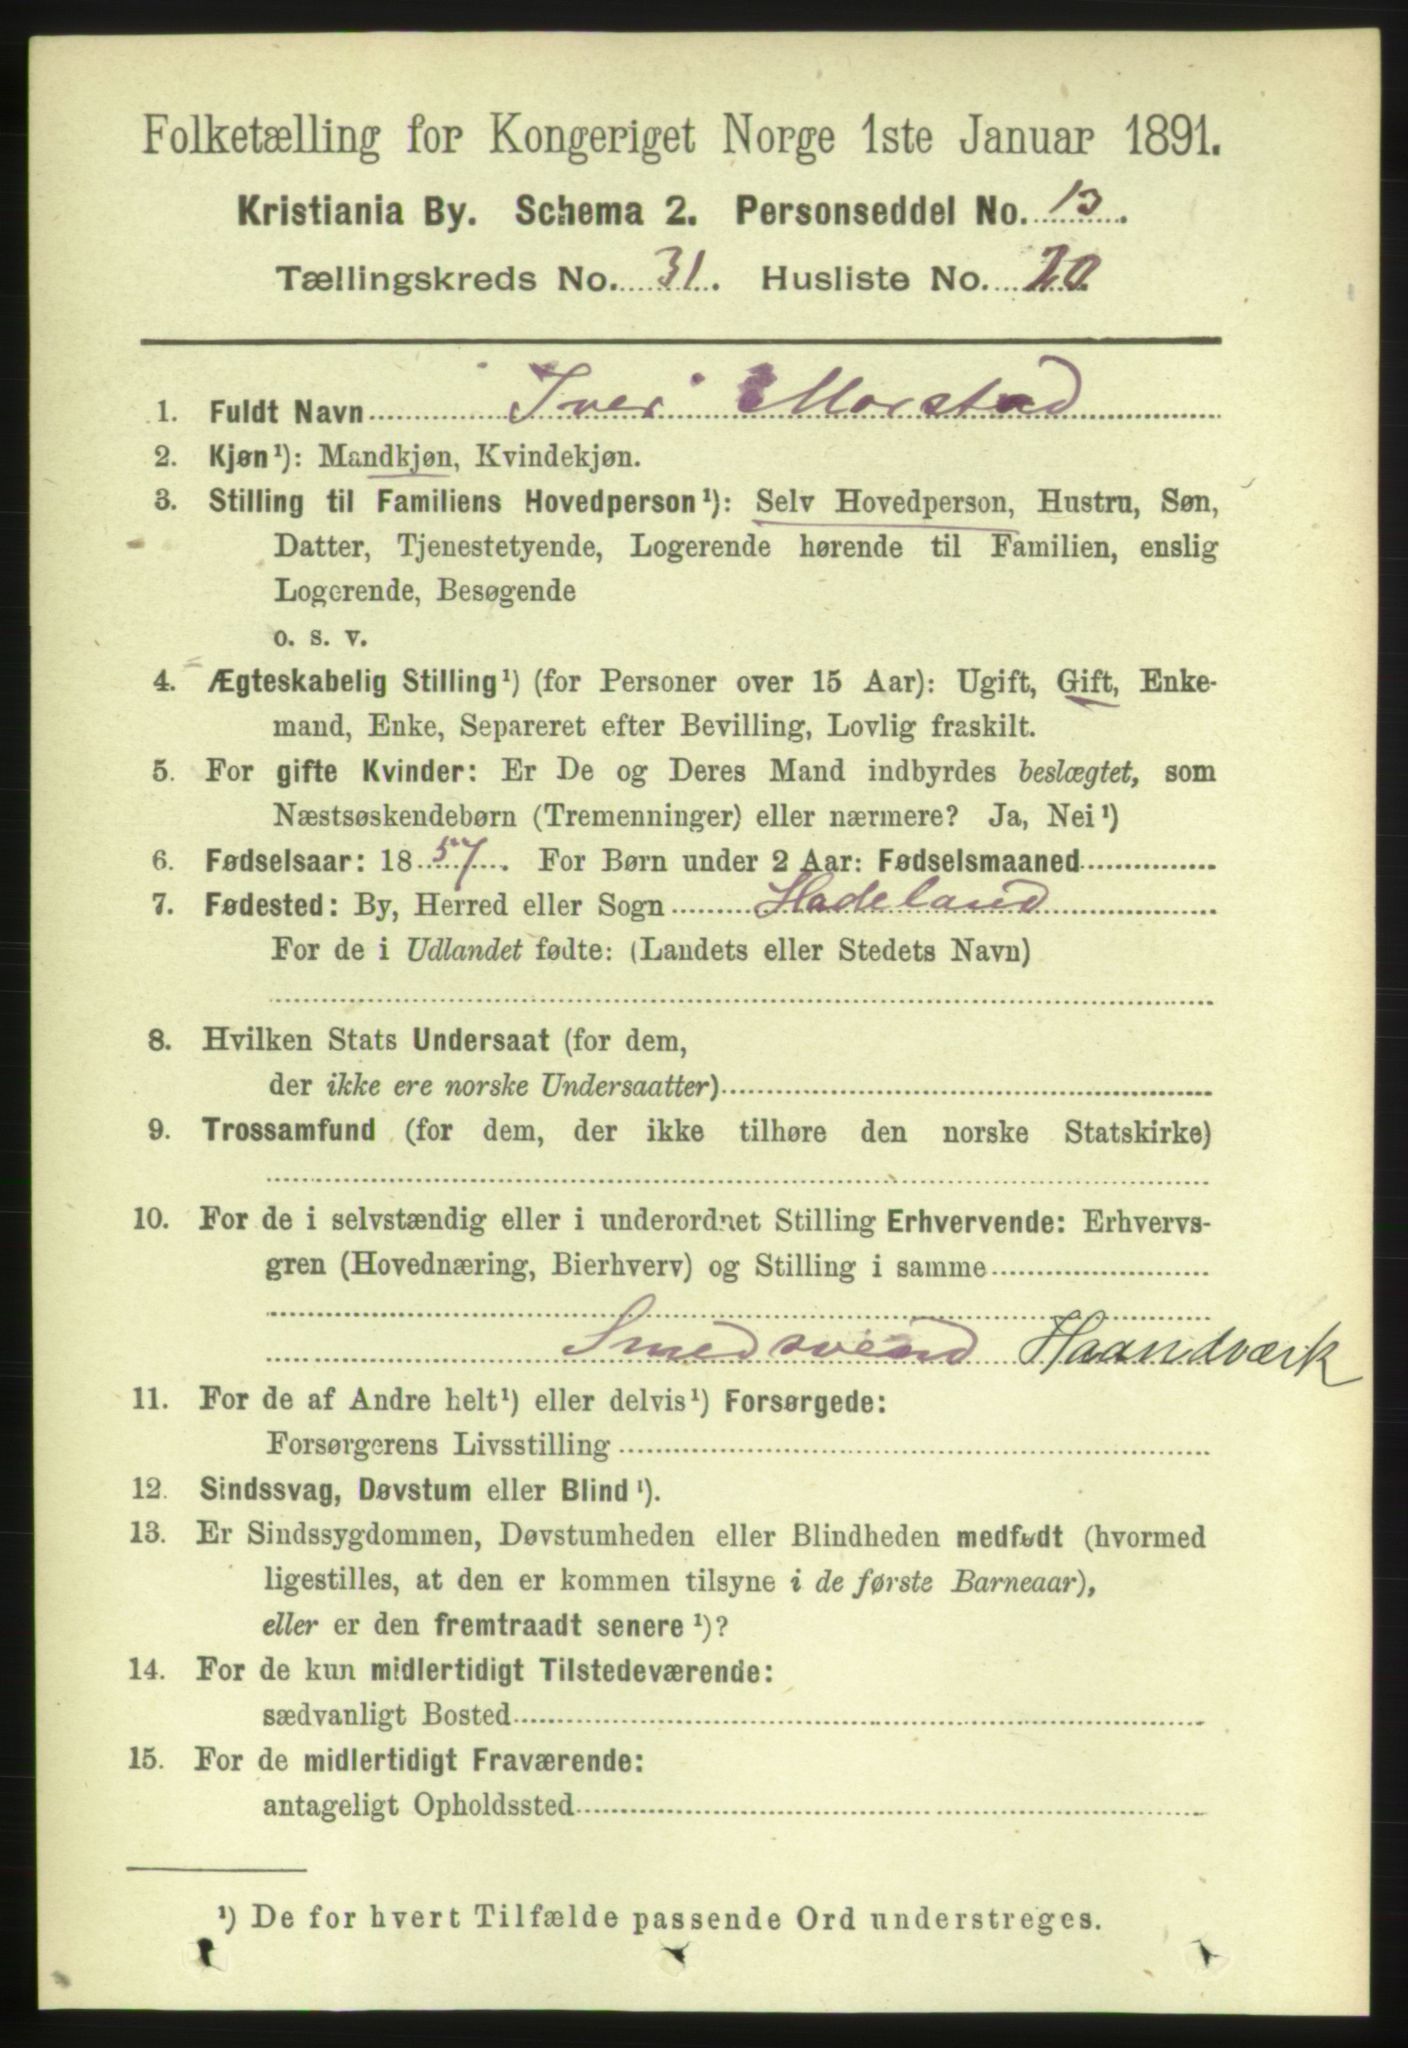 Folketælling for Kongeriget Norge 1ste Januar 1891.
Kristiania By. Schema 2. Personseddel No. 13.
Tællingskreds No. 31. Husliste No. 20
1. Fuldt Navn Iver Morstad
2. Kjøn¹): Mandkjøn, Kvindekjøn.
3. Stilling til Familiens Hovedperson¹): Selv Hovedperson, Hustru, Søn,
Datter, Tjenestetyende, Logerende hørende til Familien, enslig
Logerende, Besøgende
o. s. v.
4. Ægteskabelig Stilling¹) (for Personer over 15 Aar): Ugift, Gift, Enke-
mand, Enke, Separeret efter Bevilling, Lovlig fraskilt.
5. For gifte Kvinder: Er De og Deres Mand indbyrdes beslægtet, som
Næstsøskendebørn (Tremenninger) eller nærmere? Ja, Nei¹)
6. Fødselsaar: 1857. For Børn under 2 Aar: Fødselsmaaned
7. Fødested: By, Herred eller Sogn Hadeland
For de i Udlandet fødte: (Landets eller Stedets Navn)
8. Hvilken Stats Undersaat (for dem,
der ikke ere norske Undersaatter)
9. Trossamfund (for dem, der ikke tilhøre den norske Statskirke)
10. For de i selvstændig eller i underordnet Stilling Erhvervende: Erhvervs-
gren (Hovednæring, Bierhverv) og Stilling i samme
Smedsvend Haandværk
11. For de af Andre helt¹) eller delvis¹) Forsørgede:
Forsørgerens Livsstilling
12. Sindssvag, Døvstum eller Blind¹).
13. Er Sindssygdommen, Døvstumheden eller Blindheden medfødt (hvormed
ligestilles, at den er kommen tilsyne i de første Barneaar),
eller er den fremtraadt senere¹)?
14. For de kun midlertidigt Tilstedeværende:
sædvanligt Bosted
15. For de midlertidigt Fraværende:
antageligt Opholdssted
¹) De for hvert Tilfælde passende Ord understreges.